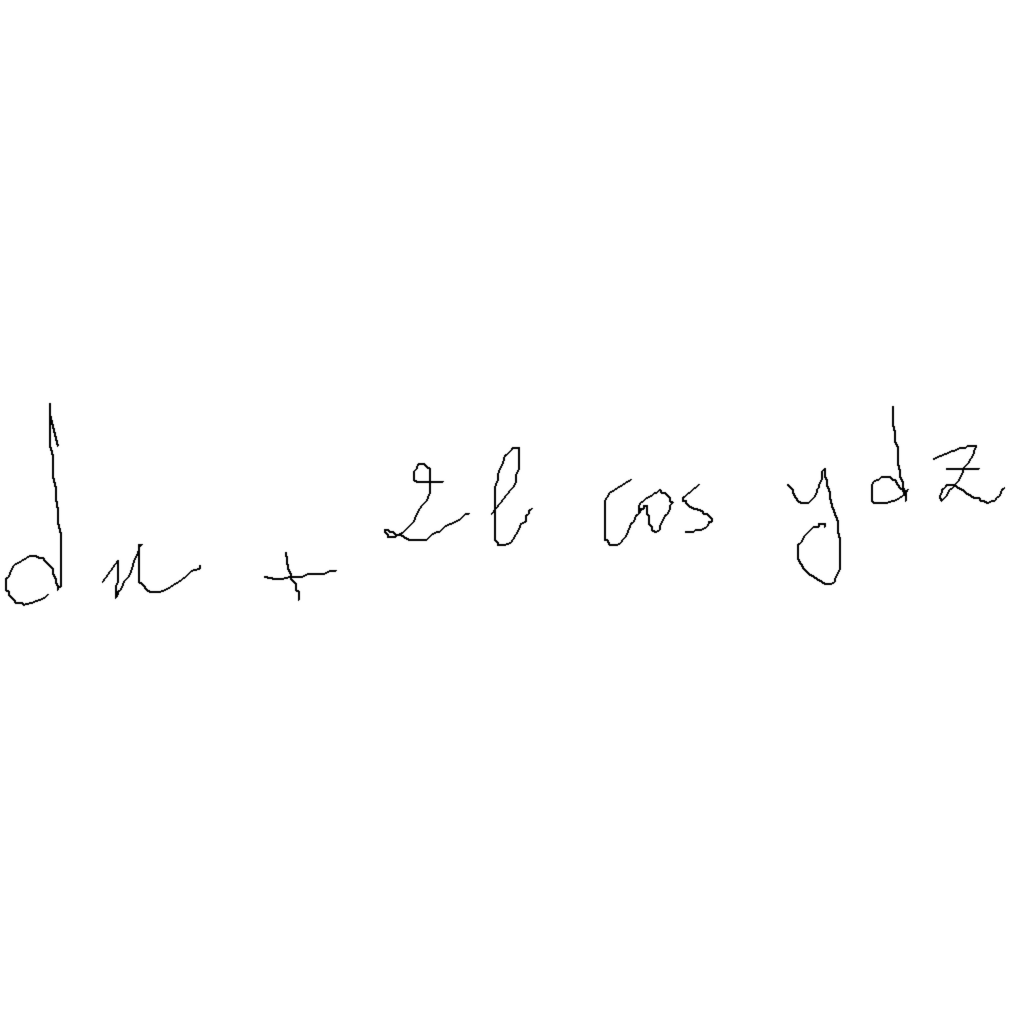 dn + 2l cos y dz